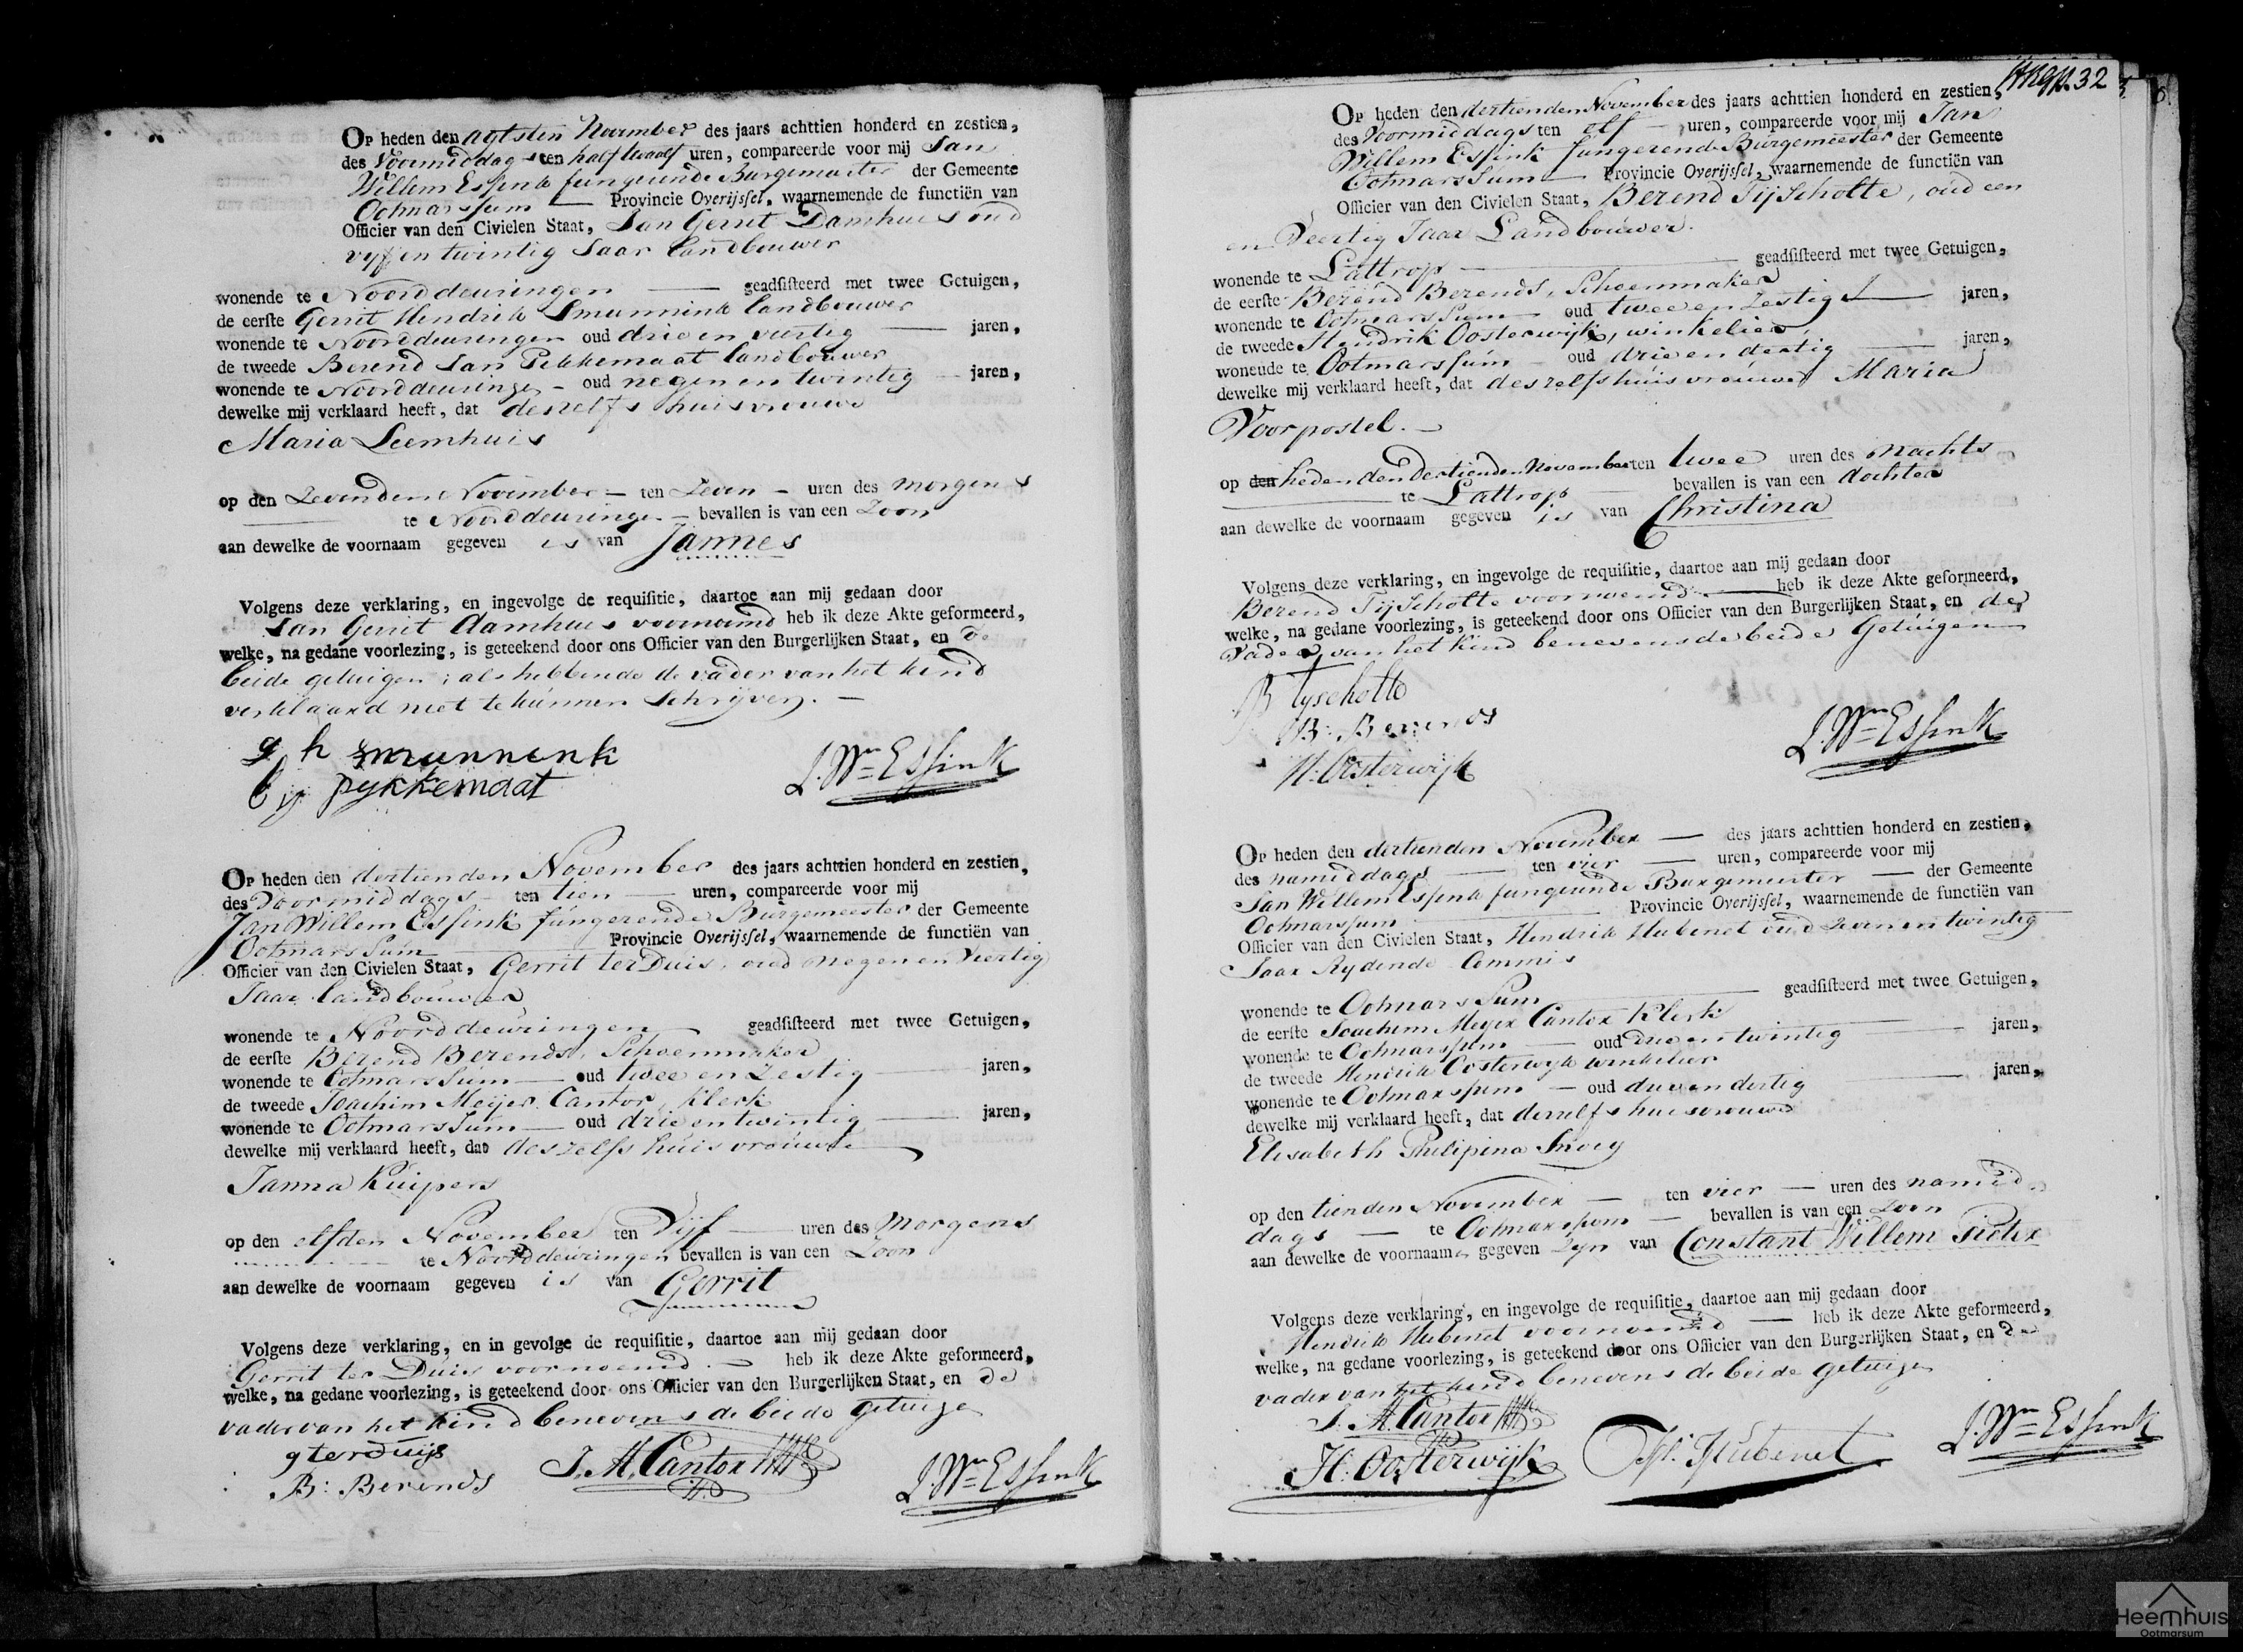 Op heden den agtsten November des jaars achttien honderd en zestien,
des Voormiddags ten half twaalf uren, compareerde voor mij Jan
Willem Essink fungerende Burgemeester der Gemeente
Ootmarssum — Provincie Overijssel, waarnemende de functiën van
Officier van den Civielen Staat, Jan Gerrit Damhuis oud
vyf en twintig Jaar landbouwer
wonende te Noorddeuringen — geadsisteerd met twee Getuigen,
de eerste Gerrit Hendrik Smunnink landbouwer
wonende te Noorddeuringen oud drie en veertig — jaren,
de tweede Berend Jan Pekkemaat landbouwer
wonende te Noorddeuringe - oud negen en twintig — jaren,
dewelke mij verklaard heeft, dat deszelfs huisvrouwe
Maria Leemhuis
op den Zevenden November — ten Zeven — uren des morgens
— te Noorddeuringe — bevallen is van een Zoon
aan dewelke de voornaam gegeven is van Jannes
Volgens deze verklaring, en ingevolge de requisitie, daartoe aan mij gedaan door
Jan Gerrit Damhuis voornoemd heb ik deze Akte geformeerd,
welke, na gedane voorlezing, is geteekend door ons Officier van den Burgerlijken Staat, en de
beide getuigen; als hebbende de vader van het kind
verklaard niet te kunnen Schrijven. —
g h smunnenk
b j pykkemaat
J. Wm Essink
Op heden den dertienden November des jaars achttien honderd en zestien,
des Voormiddags — ten tien — uren, compareerde voor mij
Jan Willem Essink fungerende Burgemeester der Gemeente
Ootmarssum — Provincie Overijssel, waarnemende de functiën van
Officier van den Civielen Staat, Gerrit ter Duis, oud negen en Veertig
Jaar landbouwer
wonende te Noorddeuringen — geadsisteerd met twee Getuigen,
de eerste Berend Berends, Schoenmaker
wonende te Ootmarssum — oud twee en zestig — jaren,
de tweede Joachim Meijer Cantor, klerk
wonende te Ootmarssum — oud drie en twintig — jaren,
dewelke mij verklaard heeft, dat deszelfs huisvrouwe
Janna Kuipers
op den elfden November ten Vijf — uren des Morgens
— te Noorddeuringen bevallen is van een Zoon
aan dewelke de voornaam gegeven is van Gerrit
Volgens deze verklaring, en in gevolge de requisitie, daartoe aan mij gedaan door
Gerrit ter Duis voornoemd. — heb ik deze Akte geformeerd,
welke, na gedane voorlezing, is geteekend door ons Officier van den Burgerlijken Staat, en de
vader van het kind benevens de beide getuige
g terduijs
B: Berends
J. M. Cantor
J. Wm Essink
32
Op heden den dertienden November des jaars achttien honderd en zestien,
des Voormiddags ten elf — uren, compareerde voor mij Jan
Willem Essink fungerende Burgemeester der Gemeente
Ootmarssum — Provincie Overijssel, waarnemende de functiën van
Officier van den Civielen Staat, Berend Tijscholte, oud een
en Veertig Jaar Landbouwer.
wonende te Lattrop — geadsisteerd met twee Getuigen,
de eerste Berend Berends, Schoenmaker
wonende te Ootmarssum oud twee en zestig — jaren,
de tweede Hendrik Oosterwijk, winkelier
wonende te Ootmarssum — oud drie en dertig — jaren,
dewelke mij verklaard heeft, dat deszelfs huisvrouwe Maria
Voorpostel. —
op den heden den dertienden November ten twee uren des nachts
— te Lattrop — bevallen is van een dochter
aan dewelke de voornaam gegeven is van Christina
Volgens deze verklaring, en ingevolge de requisitie, daartoe aan mij gedaan door
Berend Tijscholte voornoemd — heb ik deze Akte geformeerd,
welke, na gedane voorlezing, is geteekend door ons Officier van den Burgerlijken Staat, en de
Vader van het Kind benevens de beide Getuigen
B Tyscholte
B: Berends
H: Oosterwijk
J. Wm Essink
Op heden den dertienden November — des jaars achttien honderd en zestien,
des namiddags — ten vier — uren, compareerde voor mij
Jan Willem Essink fungerende Burgemeester — der Gemeente
Ootmarssum — Provincie Overijssel, waarnemende de functiën van
Officier van den Civielen Staat, Hendrik Hubenet oud zeven en twintig
Jaar Rydende Commis
wonende te Ootmarssum — geadsisteerd met twee Getuigen,
de eerste Joachim Meyer Cantor Klerk
wonende te Ootmarssum — oud drie en twintig — jaren,
de tweede Hendrik Oosterwijk winkelier
wonende te Ootmarssum — oud drie en dertig — jaren,
dewelke mij verklaard heeft, dat deszelfs huisvrouwe
Elisabeth Philipina Snoey
op den tienden November — ten vier — uren des namid
dags — te Ootmarssum — bevallen is van een Zoon
aan dewelke de voornaamen gegeven zyn van Constant Willem Pieter
Volgens deze verklaring, en ingevolge de requisitie, daartoe aan mij gedaan door
Hendrik Hubenet voornoemd — heb ik deze Akte geformeerd,
welke, na gedane voorlezing, is geteekend door ons Officier van den Burgerlijken Staat, en de
vader van het kind benevens de beide getuige
J. M. Cantor
H: Oosterwijk
H. Hubenet
J. Wm Essink
Heemhuis
Ootmarsum